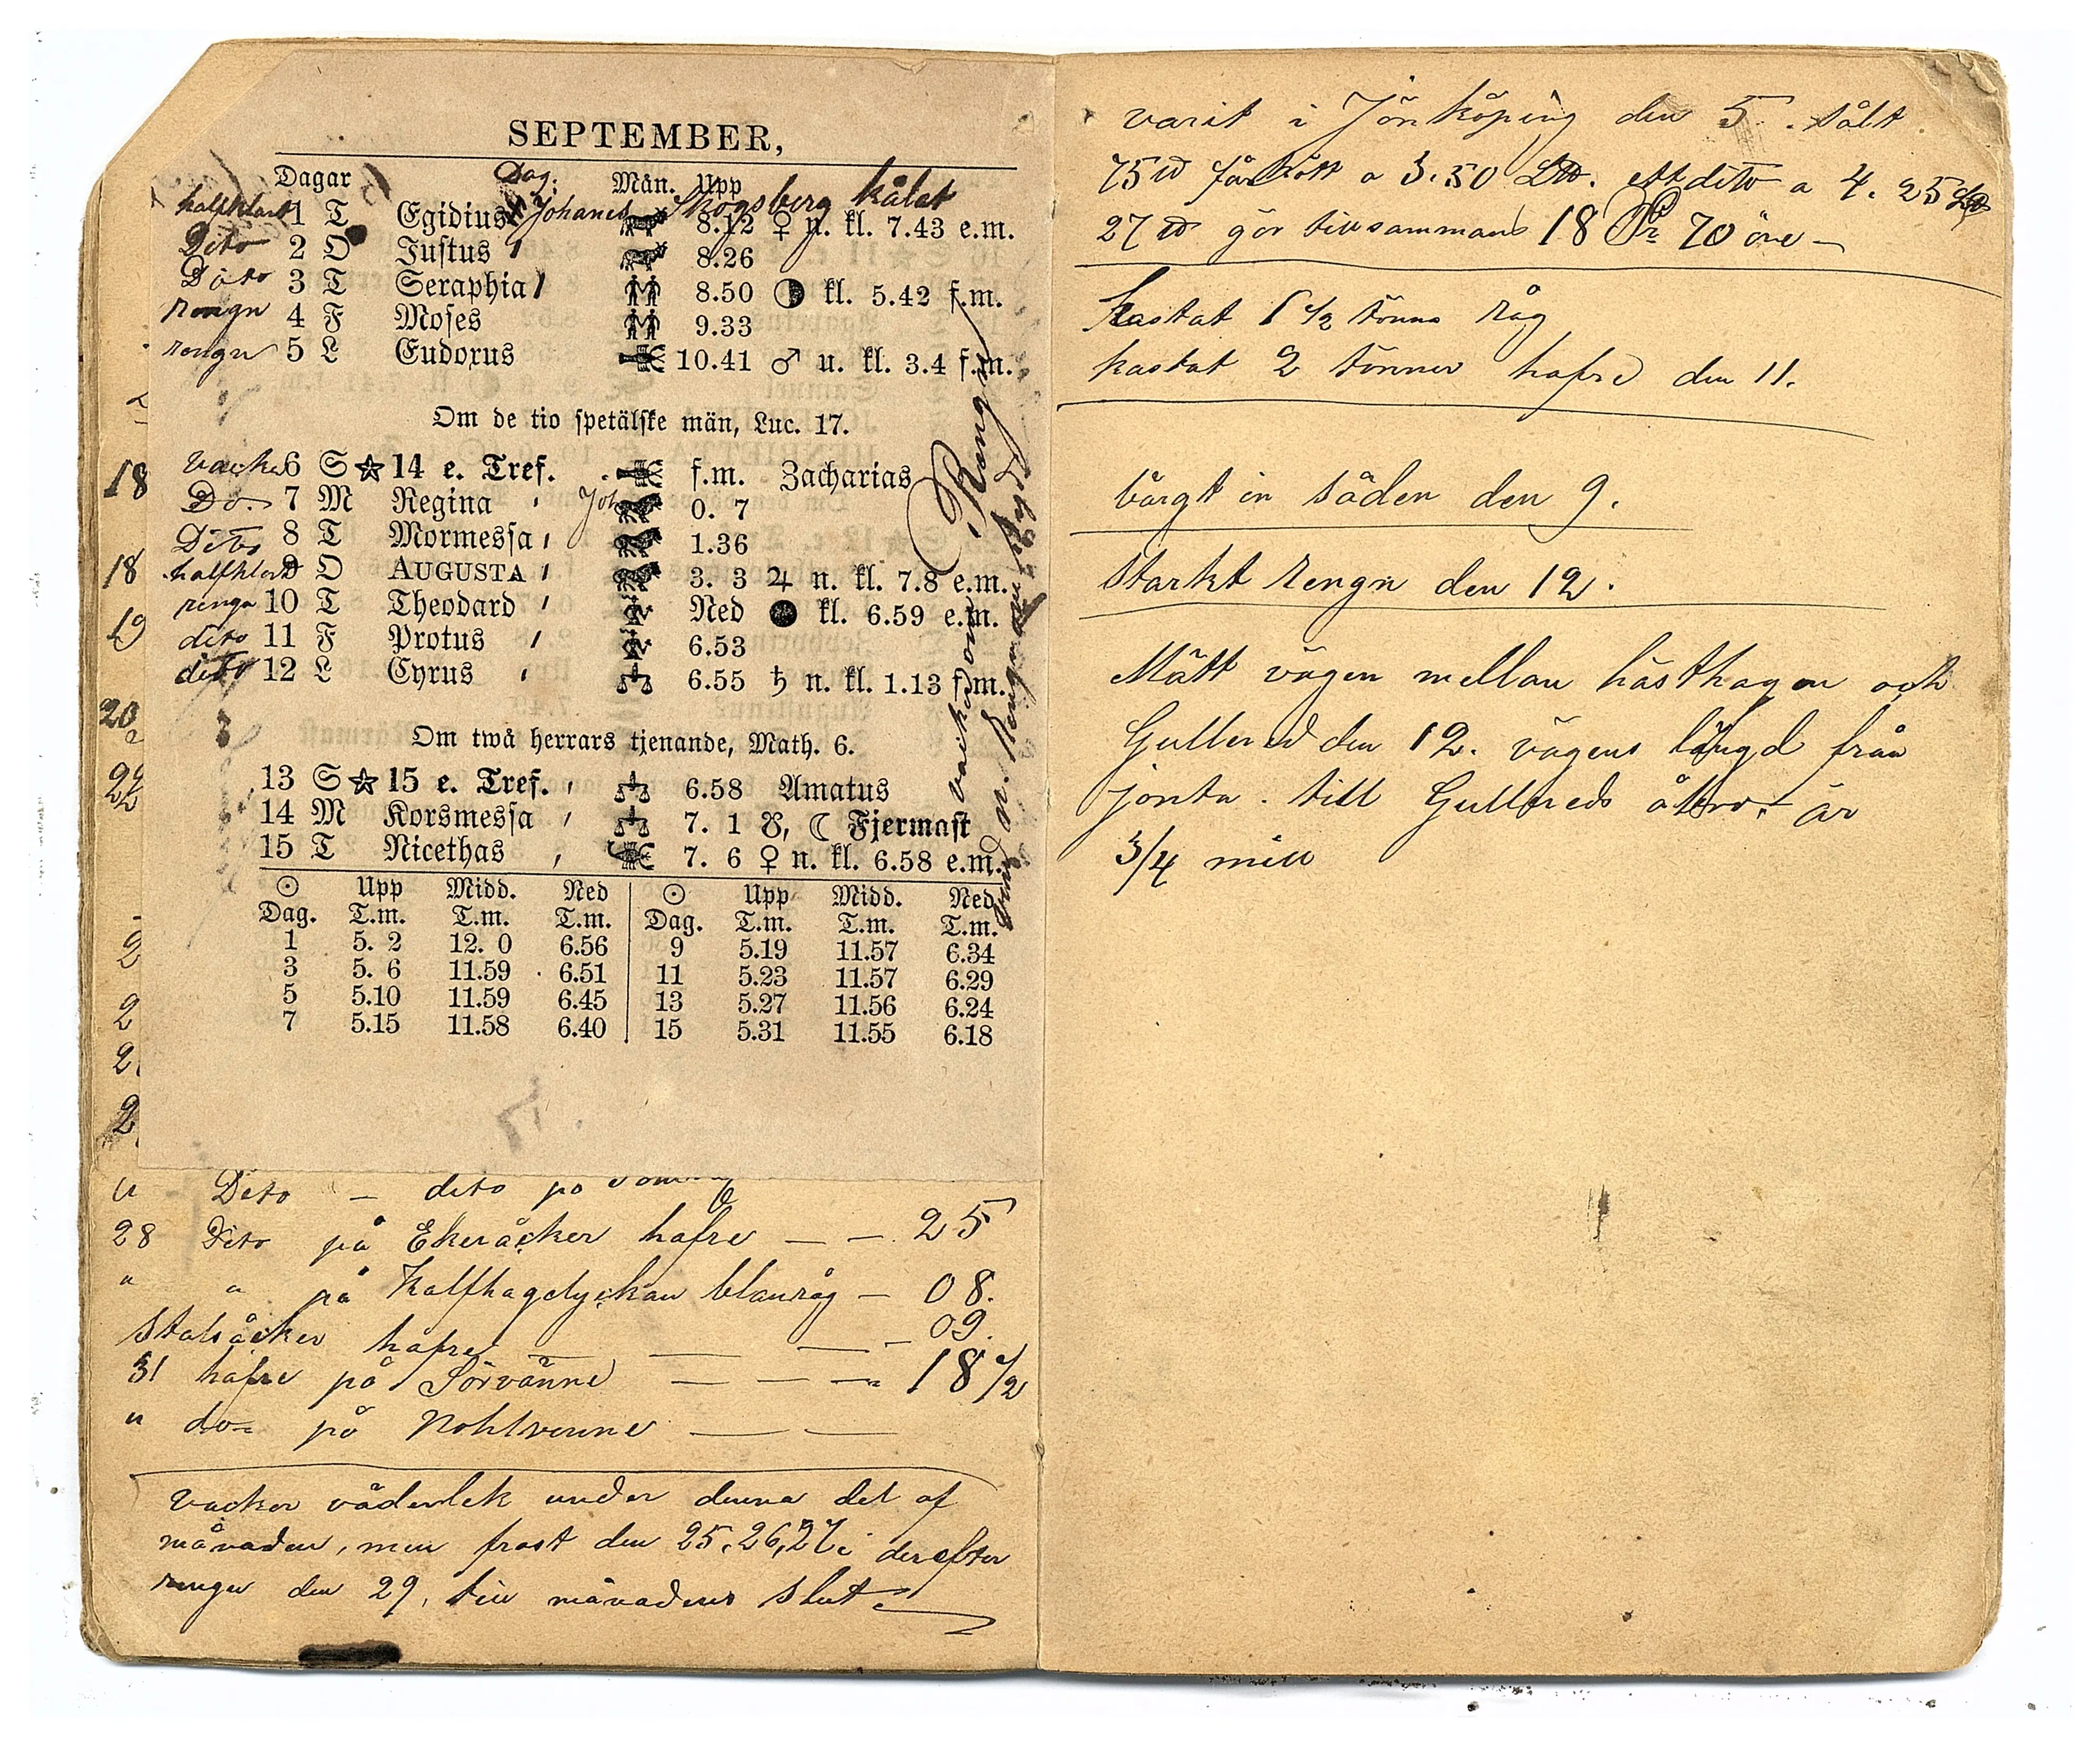 SEPTEMBER,
Dagar Dag. Mån. Upp
halfklart 1 T Egidius Johanes Skogsberg kålat 8.12 ♀ n. kl. 7.43 e.m.
Dito 2 O Justus 8.26
Dito 3 T Seraphia 8.50 kl. 5.42 f.m.
rengn 4 F Moses 9.33
rengn 5 L Eudoxus 10.41 ♂ u. kl. 3.4 f.m.
Om de tio spetälske män, Luc. 17.
18
vacke 6 S 14 e. Tref. f.m. Zacharias
Do. 7 M Regina Joh 0. 7
Dito 8 T Mormessa 1.36
18 halfklart 9 O AUGUSTA 3. 3 ♃ n. kl. 7.8 e.m.
rengn 10 T Theodard Ned kl. 6.59 e.m.
19 dito 11 F Protus 6.53
dito 12 L Cyrus 6.55 ♄ n. kl. 1.13 f.m.
20
Om twå herrars tjenande, Math. 6.
22 13 S 15 e. Tref. 6.58 Amatus
14 M Korsmessa 7. 1 ☋, ☾ Fjermast
15 T Nicethas 7. 6 ♀ n. kl. 6.58 e.m.
☉ Upp Midd. Ned ☉ Upp Midd. Ned
Dag. T.m. T.m. T.m. Dag. T.m. T.m. T.m.
1 5. 2 12. 0 6.56 9 5.19 11.57 6.34
3 5. 6 11.59 6.51 11 5.23 11.57 6.29
5 5.10 11.59 6.45 13 5.27 11.56 6.24
7 5.15 11.58 6.40 15 5.31 11.55 6.18
2
2
2
2
" Dito — dito på
28 Dito på Ekeråcker hafre — — 25
" " på Kalfhagelyckan blanråg — 08.
Stalsåcker hafre — — — 09.
31 hafre på Sörvänne — — — 18 1/2
" do på Nohlvenne — —
Vacker väderlek under denna del af
månaden, men frost den 25, 26, 27, derefter
rengn den 29, till månadens slut
varit i Jönköping den 5. sålt
75 ℔ fårkött a 3.50 L℔. ett dito a 4. 25
27 ℔ gör tillsammans 18 Rr 70 öre —
kastat 1 1/2 tönna råg
kastat 2 tönner hafre den 11.
bärgt in säden den 9.
Starkt rengn den 12.
Mätt vägen mellan hästhagen och
Gullered den 12. vägens längd från
jonta. till Gullereds är
3/4 mill